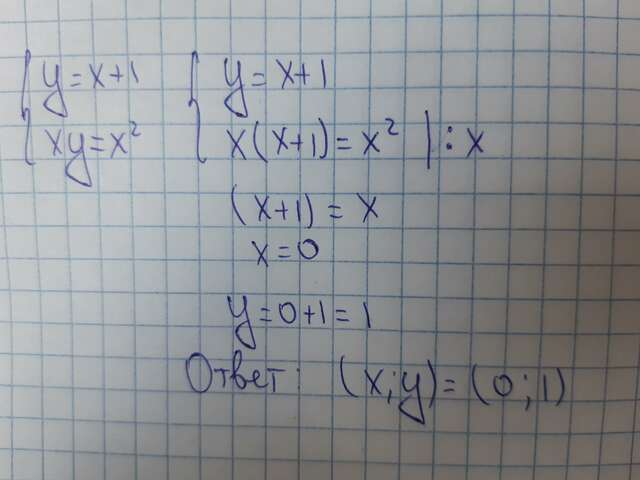 y = x+1 y = x+1
xy = x² x(x+1) = x² | : x
(x+1) = x
x = 0
y = 0+1 = 1
Ответ: (x;y) = (0;1)